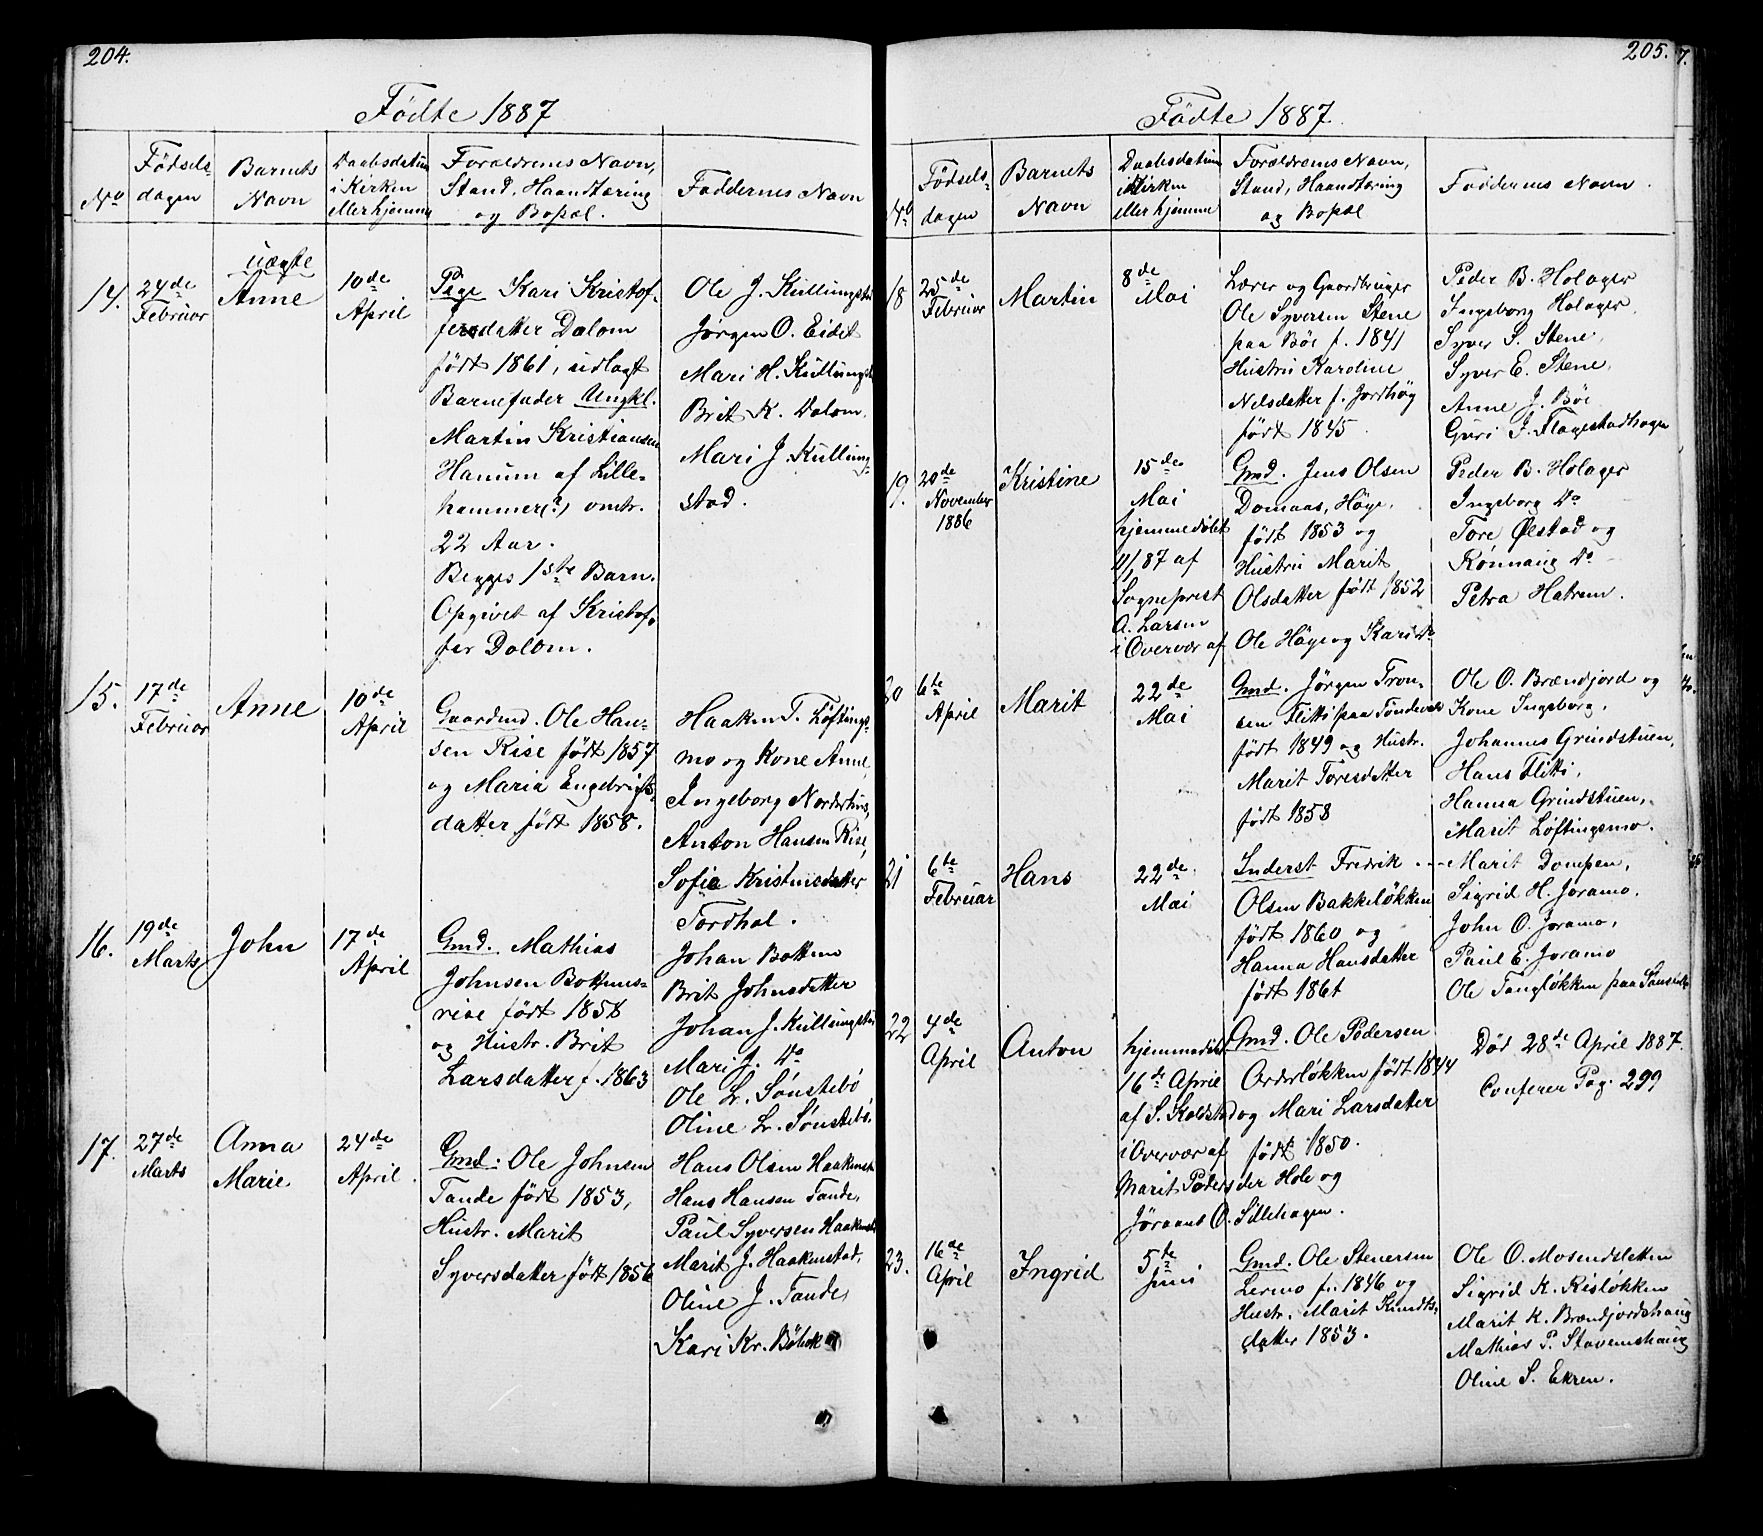 204.
Fødte 1887
No
Fødsels-
dagen
Barnets
Navn
Daabsdatum
i Kirken
eller hjemme
Forældrenes Navn,
Stand, Haandtæring
og Bopæl.
Faddernes Navn
14.
24de
Februar
uægte
Anne
10de
April
Pige Kari Kristof-
fersdatter Dalom
født 1861, udlagt
Barnefader Ungkl.
Martin Kristiansen
Hanum af Lille-
hammer(?) omtr.
22 Aar.
Begges 1ste Barn.
Opgivet af Kristof-
fer Dalom.
Ole J. Kullungsta
Jørgen O. Eidet
Mari H. Kullungs
Brit K. Dalom,
Mari J. Kullung-
stad.
15.
17de
Februar
Anne
10de
April
Gaardmd. Ole Han-
sen Rise født 1857
og Maria Engebrigts-
datter født 1858.
Haaken T. Løftings-
mo og Kone Anne,
Ingeborg Norderhus,
Anton Hansen Rise,
Sofie Kristensdatter
Tordhol.
16.
19de
Marts
John
17de
April
Gmd. Mathias
Johnsen Bottens-
rise født 1858
og Hustr. Brit
Larsdatter f. 1863
Johan Botten
Brit Johnsdatter
Johan J. Kullungsta
Mari J. Do
Ole L. Sønstebö
Oline L. Sønstebö,
17.
27de
Marts
Anna
Marie
24de
April.
Gmd. Ole Johnsen
Tande født 1853,
Hustr. Marit
Syversdatter født 1856
Hans Olsen Haakenst
Hans Hansen Tande,
Paul Syversen Haakenst
Marit J. Haakenstad,
Oline J. Tande,
Kari Kr. Bølek
205.
7.
Fødte 1887.
No
Fødsels-
dagen
Barnets
Navn
Daabsdatum
i Kirken
eller hjemme
Forældrenes Navn,
Stand, Haandtæring
og Bopæl
Faddernes Navn.
18
25de
Februar
Martin
8de
Mai
Lærer og Gaardbruger
Ole Syversen Stene
paa Böe f. 1841
Hustru Karoline
Nilsdatter f. Jordhøg
født 1845.
Peder B. Holager
Ingeborg Holager,
Syver S. Stene,
Syver E. Stene,
Anne J. Böe
Guri J. Flagestadhagen
19.
20de
November
1886
Kristine
15de
Mai
hjemmedøbt
/87 af
Sogneprest
A. Larsen
i Overvær af
Gmd. Jens Olsen
Domaas, Høge,
født 1853 og
Hustru Marit
Olsdatter født 1852
Ole Høge og Kari Do
Peder B. Holager
Ingeborg Do
Tore Ølstad og
Rønnaug Do
Petra Hatrem.
20
6te
April
Marit
22de
Mai
Gmd. Jørgen Tron-
sen Flitti paa Tøndevold
født 1849 og Hustr.
Marit Toresdatter
født 1858
Ole O. Brændjord og
Kone Ingeborg,
Johannes Grindstuen,
Hans Flitti,
Hanna Grindstuen,
Marit Løftingsmo.
21
6te
Februar
Hans
22de
Mai
Inderst Fredrik
Olsen Bakkeløkken
født 1860 og
Hanna Hansdatter
født 1861
Marit Dompen,
Sigrid H. Joramo.
John O. Joramo,
Paul E. Joramo
Ole Tangløkken paa
22
4de
April
Anton
hjemmedøbt
16de April
af S. Kolstad
i Overvær af
Marit Peders
Jöraand O.
Gmd. Ole Pedersen
Orderløkken født 1844
og Mari Larsdatter
født 1850.
der Hole og
Sillehagen.
Død 28de April 1887.
Conferer Pag. 299
23.
16de
April
Ingrid
5te
Juni
Gmd. Ole Stenersen
Lermo f. 1846 og
Hustr. Marit Knudts-
datter 1853.
Ole O. Mosendsletten
Sigrid K. Risløkken
Marit K. Brændjordshaug
Mathias P. Stavemshaug
Oline S. Ekren.